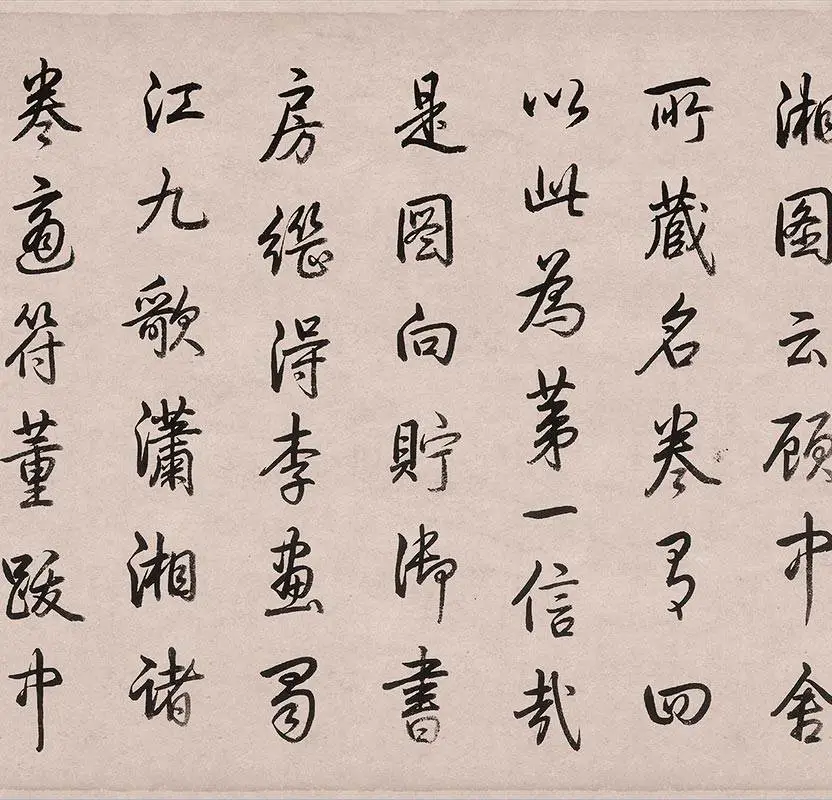 湘图云顾中舍
所藏名卷有四
以此為第一信哉
是图向貯御書
房繼得李畫蜀
江九歌瀟湘諸
卷適符董跋中